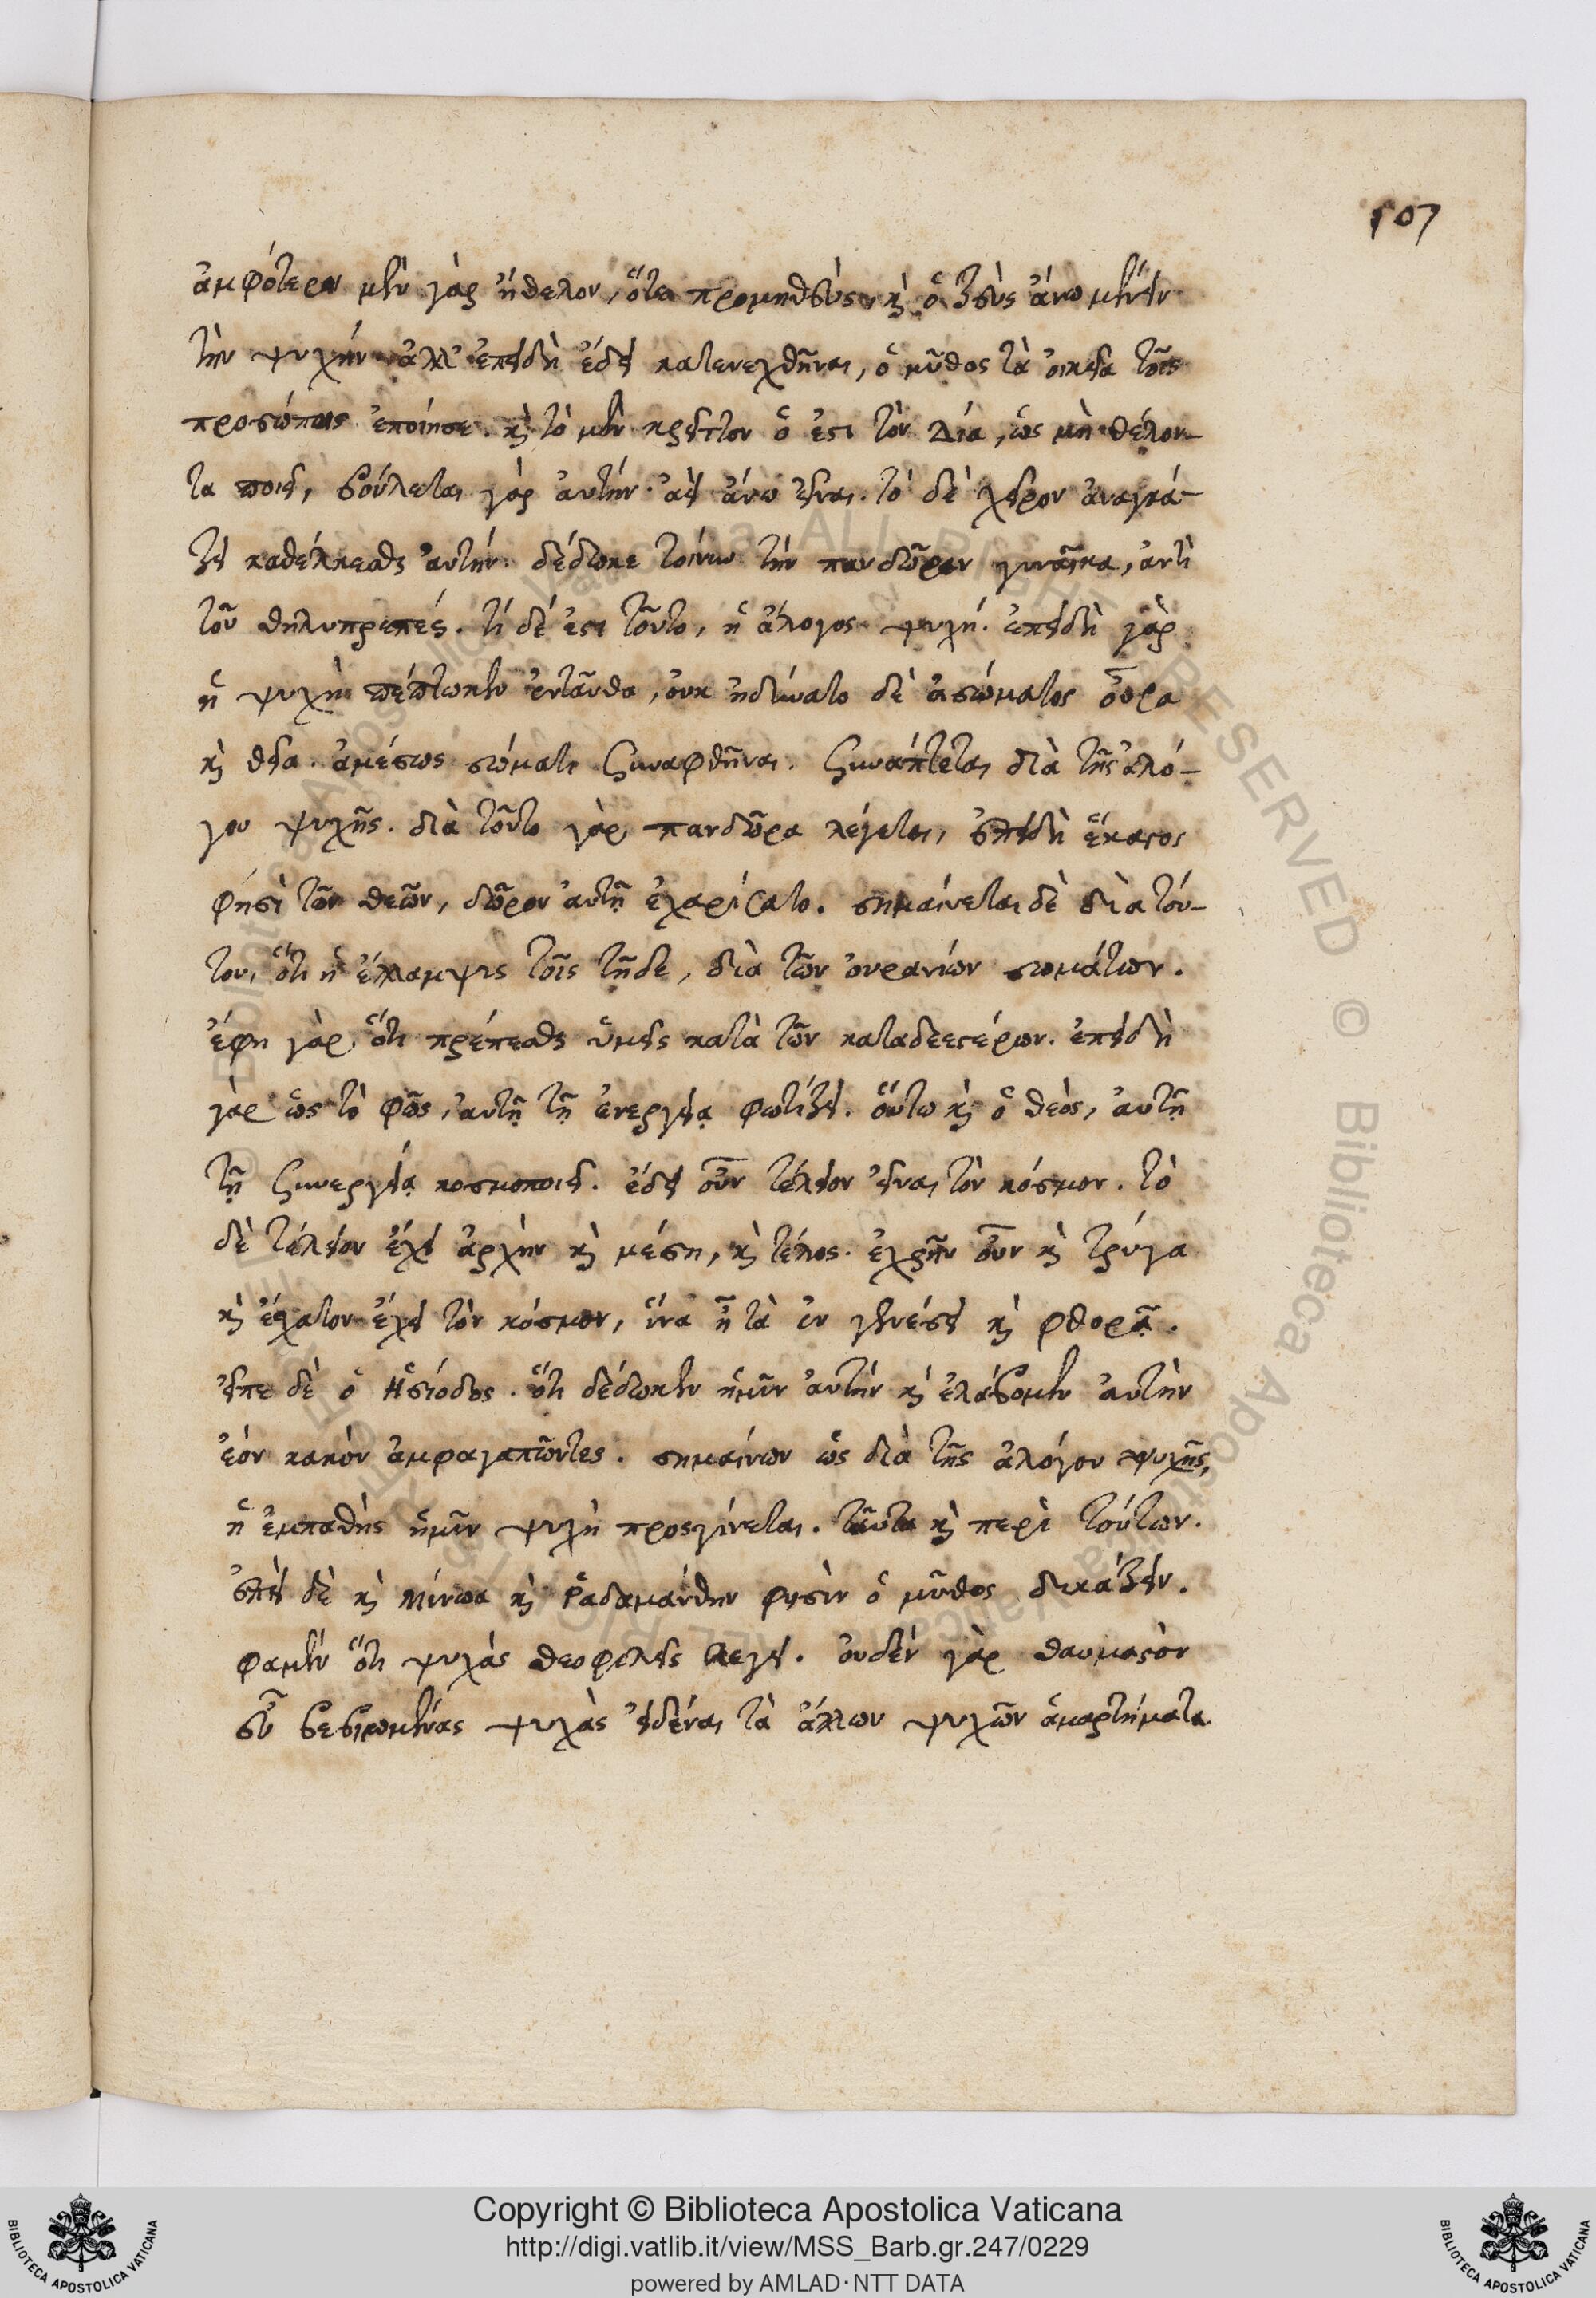 107
ἀμφότεροι μὲν γὰρ ἤθελον, ὅτε προμηθεὺς, καὶ ὁ ζεὺς ἄνω μένειν
τὴν ψυχήν. ἀλλ' ἐπειδὴ ἔδει κατενεχθῆναι, ὁ μῦθος τὰ οἰκεῖα τοῖς
προσώποις ἐποίησε. καὶ τὸ μὲν κρεῖττον ὅ ἐστι τὸν Δία, ὡς μὴ θέλον-
τα ποιεῖ, βούλεται γὰρ αὐτήν ἀεὶ ἄνω εἶναι. τὸ δὲ χεῖρον ἀναγκά-
ζει καθέλκεσθαι αὐτήν. δέδωκε τοίνυν τὴν πανδῶραν γυναῖκα, ἀντὶ
τοῦ θηλυπρεπές. τί δέ ἐστι τοῦτο, ἡ ἄλογος ψυχή. ἐπειδὴ γὰρ
ἡ ψυχὴ πέπτωκεν ἐνταῦθα, οὐκ ἠδύνατο δὲ ἀσώματος οὖσα
καὶ θεία ἀμέσως σώματι συναφθῆναι. συνάπτεται διὰ τῆς ἀλό-
γου ψυχῆς. διὰ τοῦτο γὰρ πανδῶρα λέγεται, ἐπειδὴ ἕκαστος
φησὶ τῶν θεῶν, δῶρον αὐτῇ ἐχαρίσατο. σημαίνεται δὲ διὰ τού-
του, ὅτι ἡ ἔλλαμψις τοῖς τῇδε, διὰ τῶν οὐρανίων σωμάτων.
ἔφη γὰρ, ὅτι πρέπεσθαι ὑμεῖς κατὰ τῶν καταδεεστέρων. ἐπειδὴ
γὰρ ὡς τὸ φῶς, αὐτῇ τῇ ἐνεργείᾳ φωτίζει. οὕτω καὶ ὁ θεὸς, αὐτῇ
τῇ συνεργείᾳ κοσμοποιεῖ. ἔδει οὖν τέλειον εἶναι τὸν κόσμον. τὸ
δὲ τέλειον ἔχει ἀρχὴν καὶ μέση, καὶ τέλος. ἐχρῆν οὖν καὶ τρύγα
καὶ ἔσχατον ἔχει τὸν κόσμον, ἵνα ᾖ τὰ ἐν γενέσει καὶ φθορᾷ.
εἶπε δὲ ὁ Ἡσίοδος. ὅτι δέδωκεν ἡμῖν αὐτήν καὶ ἐλάβομεν αὐτὴν
ἑόν κακόν ἀμφαγαπῶντες. σημαίνων ὡς διὰ τῆς ἀλόγου ψυχῆς,
ἡ ἐμπαθὴς ἡμῖν ψυχὴ προσγίνεται. ταῦτα καὶ περὶ τούτων.
ἐπεὶ δὲ καὶ Μίνωα καὶ Ῥαδαμάνθην φησὶν ὁ μῦθος δικάζειν.
φαμὲν ὅτι ψυχάς θεοφιλεῖς λέγει. οὐδὲν γὰρ θαυμαστὸν
εὖ βεβιωμένας ψυχὰς εἰδέναι τὰ ἄλλων ψυχῶν ἁμαρτήματα.
© Biblioteca Apostolica Vaticana ALL RIGHTS RESERVED
Copyright © Biblioteca Apostolica Vaticana
http://digi.vatlib.it/view/MSS_Barb.gr.247/0229
powered by AMLAD·NTT DATA
BIBLIOTECA APOSTOLICA VATICANA
BIBLIOTECA APOSTOLICA VATICANA